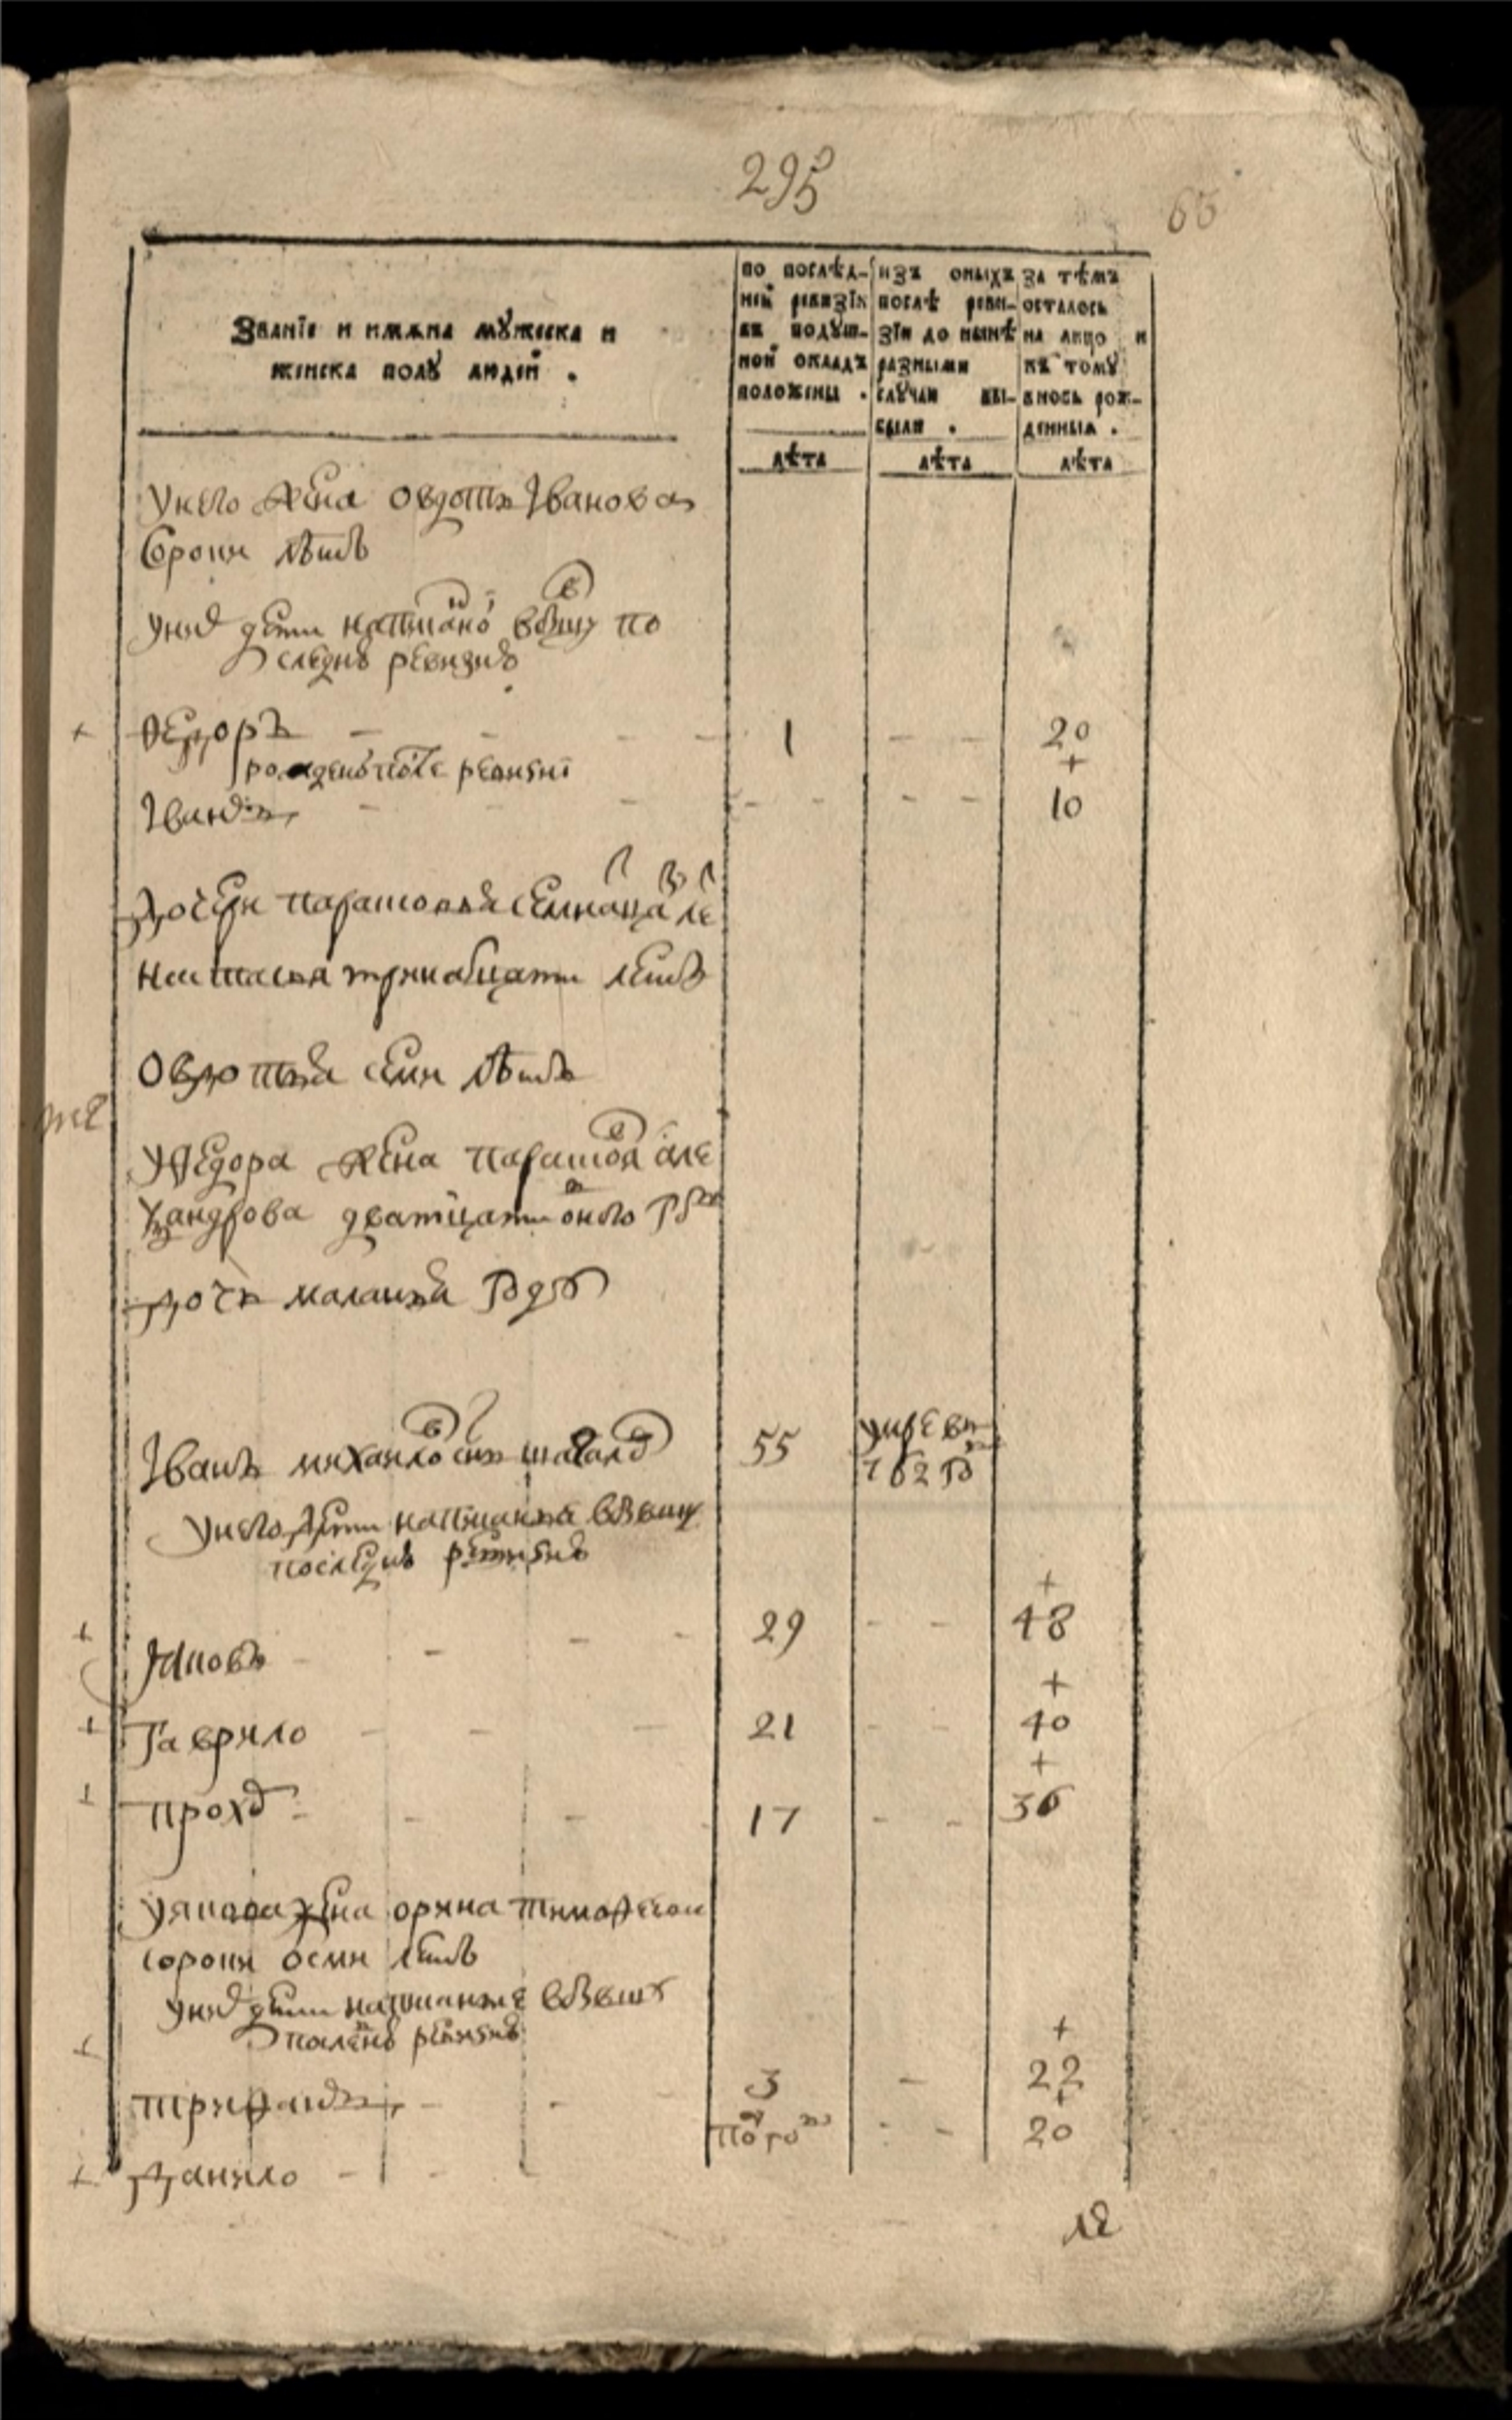 295
65
Званїе и имѧна мꙋжеска и
женска полꙋ людей .
по послѣд-
ней ревизїи
въ подꙋш-
ной окладъ
положены .
лѣта
изъ оныхъ
послѣ реви-
зїи до нынѣ
разными
слꙋчаи вы-
были .
лѣта
за тѣмъ
осталось
на лицо и
къ томꙋ
вновь рож-
денныя .
лѣта
У него жена Овдотья Іванова
сорока лѣтъ
у них дети написано в бывшую по
следнею ревизию
Ѳедоръ 1 20
рожденой после ревизиї
Іванъ 10
Дочери Парасковья семнатцати ле
Настасья тринадцати летъ
Овдотья семи лѣтъ
У Ѳедора жена Парасковья Але
ѯандрова дватцати одного году
дочь Маланья году
Іванъ Михайловъ сынъ 55 умре в
762 го
у него дети написанныя в бывшую
последнею ревизию
Яковъ 29 48
Гаврило 21 40
Прохор 17 36
У Якова жена Орина Тимофеева
сорока осми летъ
у них дети написанные в бывшую
последнею ревизию
Трифанъ 3 22
Данило полго 20